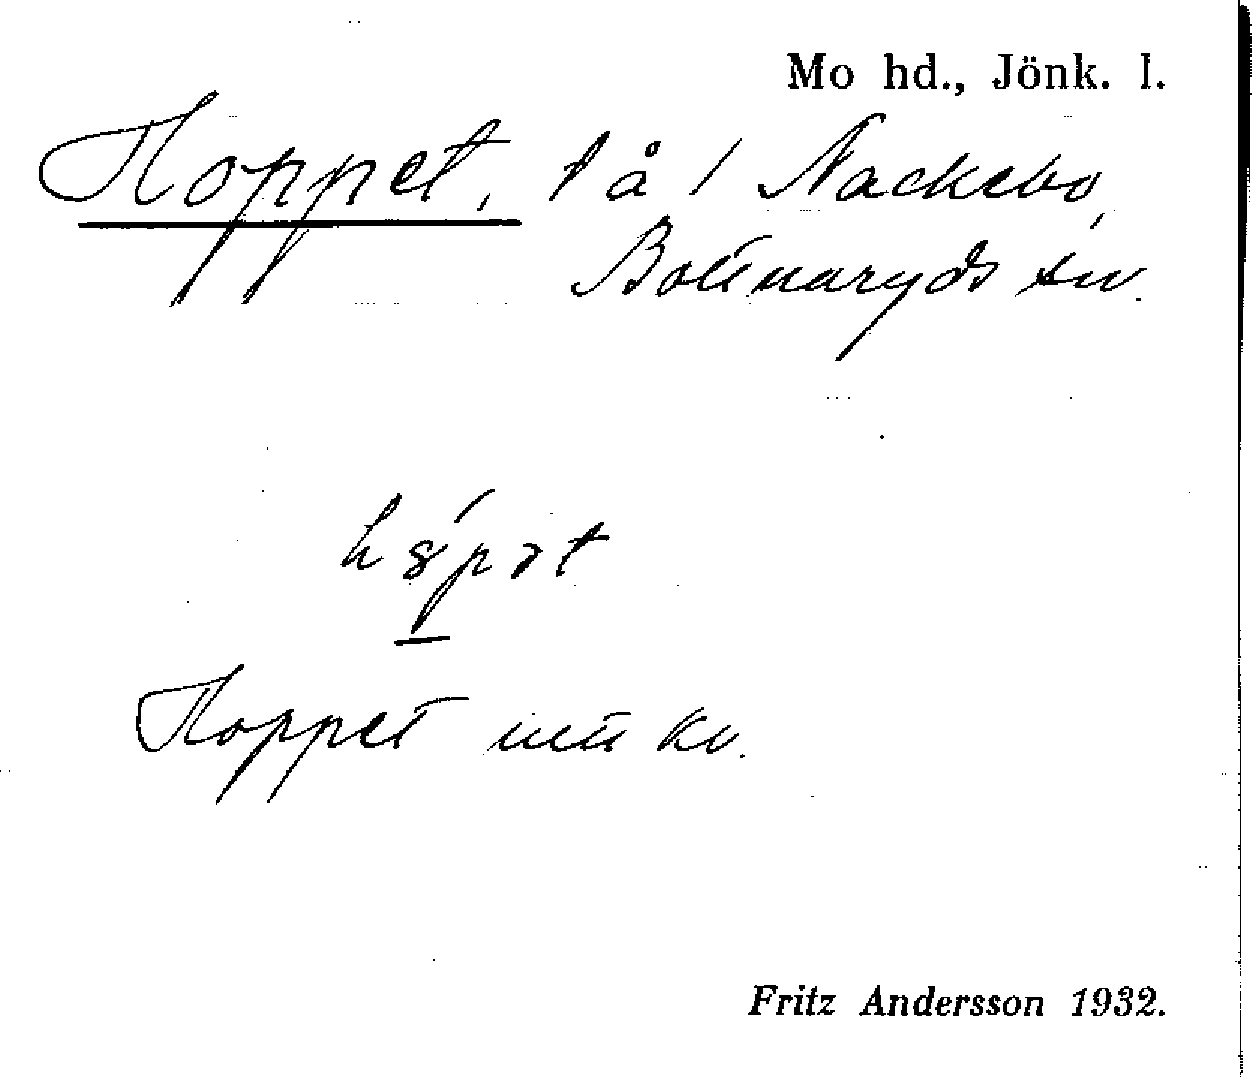 Mo hd., Jönk. l.
Hoppet, t å / Nackebo,
Bottnaryds sn.
Hoppet
Fritz Andersson 1932.